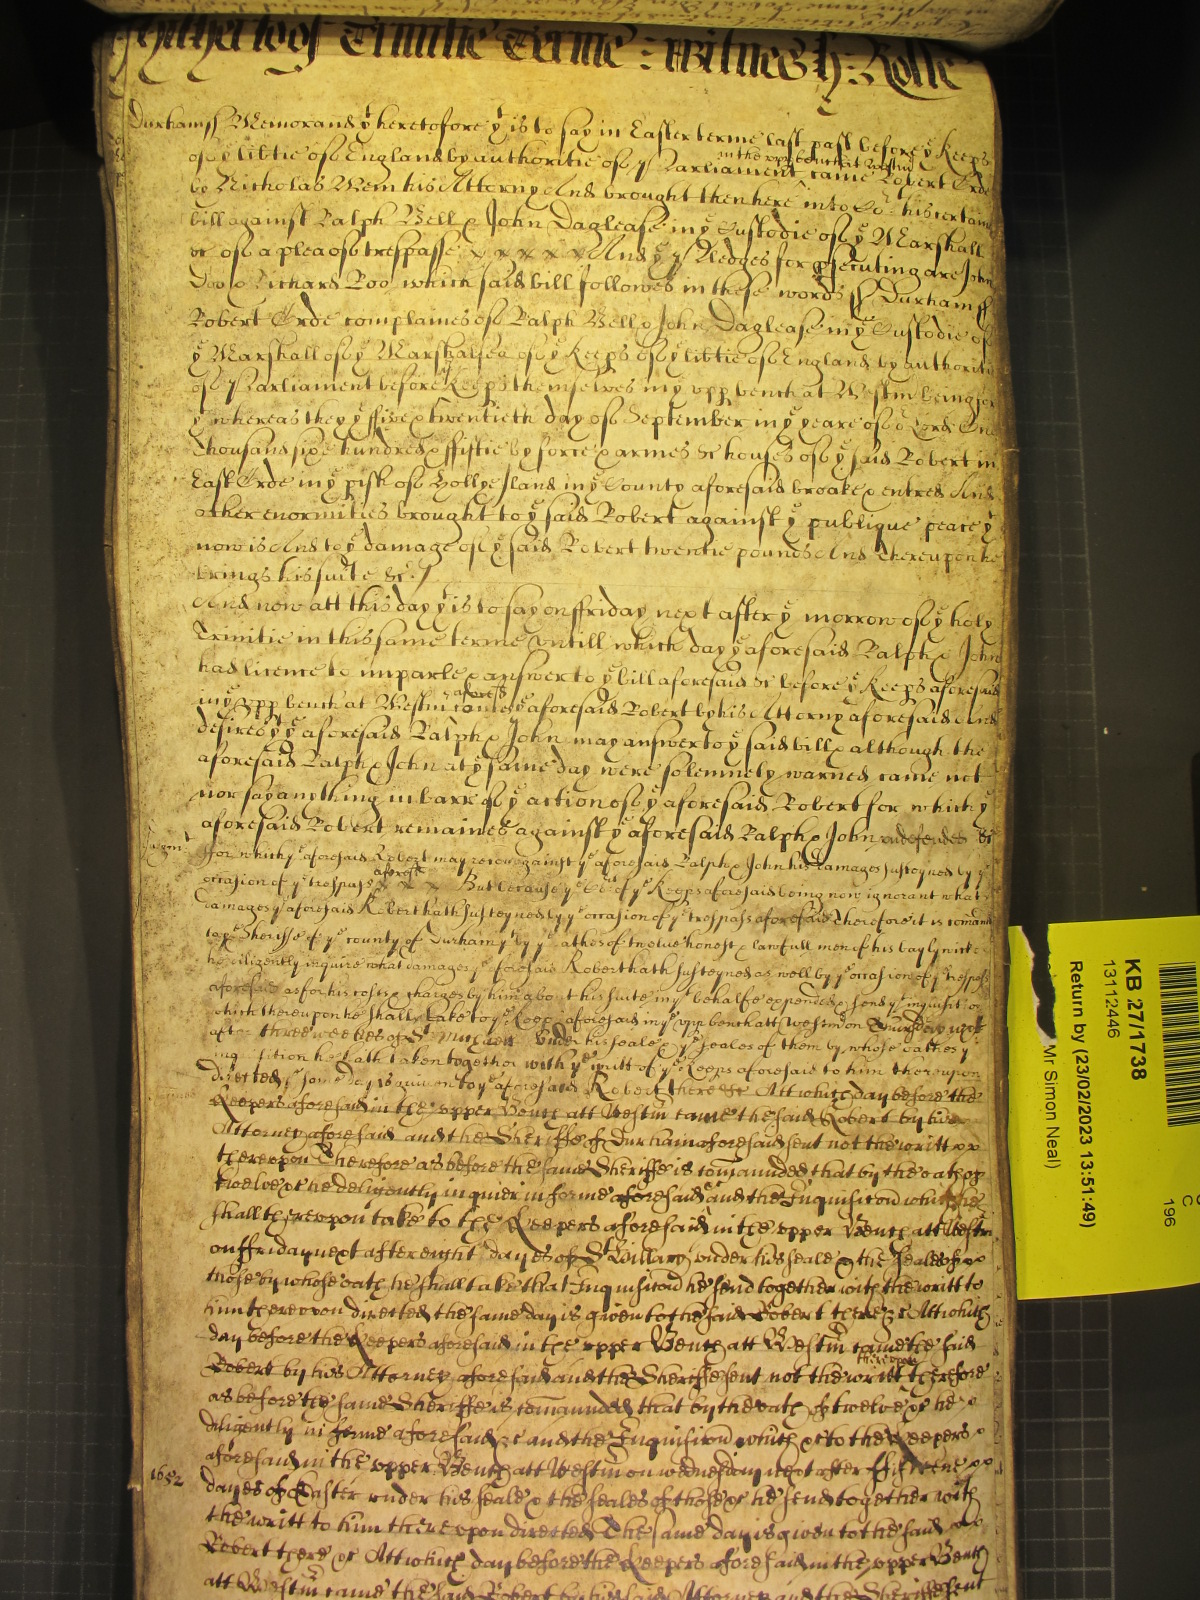 further of Trinitie Terme : Witnes H: Rolle
Durham ss Memorand yt heretofore yt is to say in Easter terme last past before ye Keeps
of ye libtie of England by authoritie of Parliament came Robert Orde
in the upp bench at Westm
by Nicholas Wem his Attorny And brought then here into Cort his certaine
bill against Ralph Bell & John Daglease in ye Custodie of ye Marshall
&c of a plea of trespasse x x x x x And yr Pledges for psecuting are John
Doo & Richard Roo which said bill followes in these words ss Durham ss
Robert Orde complaines of Ralph Bell & John Daglease in ye Custodie of
ye Marshall of ye Marshalsea of ye Keeps of ye libtie of England by authoritie
of Parliament before ye Keeps themselves in ye upp bench at Westm being for
yt whereas they ye ffive & twentieth day of September in ye yeare of or Lord One
thousand sixe hundred & ffiftie by force & armes &c houses of ye said Robert in
East Orde in ye pish of Hollye Iland in ye County aforesaid broake & entred And
other enormities brought to ye said Robert against ye publique peace yt
now is And to ye damage of ye said Robert twentie pounds And thereupon he
brings his suite &c /
And now att this day yt is to say on ffriday next after ye morrow of ye holy
Trinitie in this same terme Untill which day ye aforesaid Ralph & John
had licence to imparle & answer to ye bill aforesaid &c before ye Keeps aforesaid
in ye upp bench at Westm aforesd came ye aforesaid Robert by his Attorny aforesaid And
desires yt ye aforesaid Ralph & John may answer to ye said bill & although the
aforesaid Ralph & John at ye same day were solemnely warned came not
nor say anything in barr of ye action of ye aforesaid Robert for which ye
aforesaid Robert remaines against ye aforesaid Ralph & John undefended &c
ffor which ye aforesaid Robert may recover against ye aforesaid Ralph & John his damages susteyned by ye
occasion of ye trespass aforesd x x x But because ye Cort of ye Keeps aforesaid being now ignorant what
damages ye aforesaid Robert hath susteyned by ye occasion of ye trespass aforesaid Therefore it is comand
to ye Sheriffe of ye county of Durham yt by ye oathes of twelve honest & lawfull men of his baylywicke
he diligently inquire what damages ye aforesaid Robert hath susteyned as well by ye occasion of ye trespass
aforesaid as for his costs & charges by him about his suite in yt behalfe expended & send ye inquisit
which thereupon he shall take to ye Keeps aforesaid in ye upp bench att Westm on Thursday next
after three weekes of St Michaell under his seale & ye seales of them by whose oathes ye
inquisition he hath taken together with ye writt of ye Keeps aforesaid to him thereupon
directed ye same day is given to ye aforesaid Robert there &c Att which day before the
Keepers aforesaid in the upper Bench att Westm came the said Robert by his
Attorney aforesaid and the Sheriffe of Durham aforesaid sent not the writt
thereupon Therefore as before the same Sheriffe is comaunded that by the oath of
twelve &c he deligently inquier in forme aforesaid and the Inquisicon which he
shall thereupon take to the Keepers aforesaid in the upper Bench att Westm
on ffriday next after eight dayes of St Hillary under his seale & the seales of
those by whose oath he shall take that Inquisicon he send together with the writt to
him thereupon directed the same day is given to the said Robert there &c Att which
day before the Keepers aforesaid in the upper Bench att Westm came the said
Robert by his Attorney aforesaid and the Sheriffe sent not the writt thereupon therefore
as before the same Sheriffe is comaunded that by the oath of twelve &c he
diligently in forme aforesaid &c and the Inquisicon which &c to the Keepers
aforesaid in the upper Bench att Westm on wednesday next after ffifteene
1652
dayes of Easter under his seale & the seales of those &c he send together with
the writt to him thereupon directed The same day is given to the said
Robert there &c Att which day before the Keepers aforesaid in the upper Bench
att Westm came the said Robert by his said Attorney and the Sheriffe sent
KB 27/1738
13112446
Return by (23/02/2023 13:51:49)
Mr Simon Neal)
C
1:96